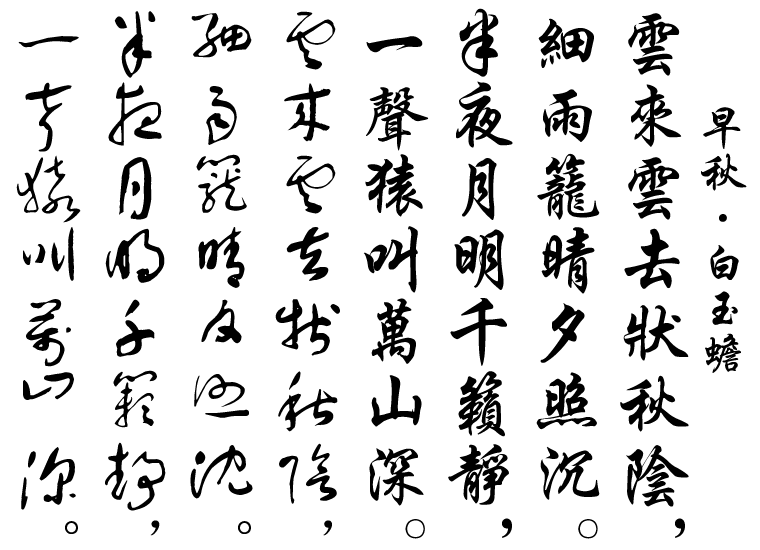 早秋·白玉蟾
雲來雲去狀秋陰，
細雨籠晴夕照沉。
半夜月明千籟靜，
一聲猿叫萬山深。
雲來雲去狀秋陰，
細雨籠晴夕照沈。
半夜月明千籟靜，
一聲猿叫萬山深。